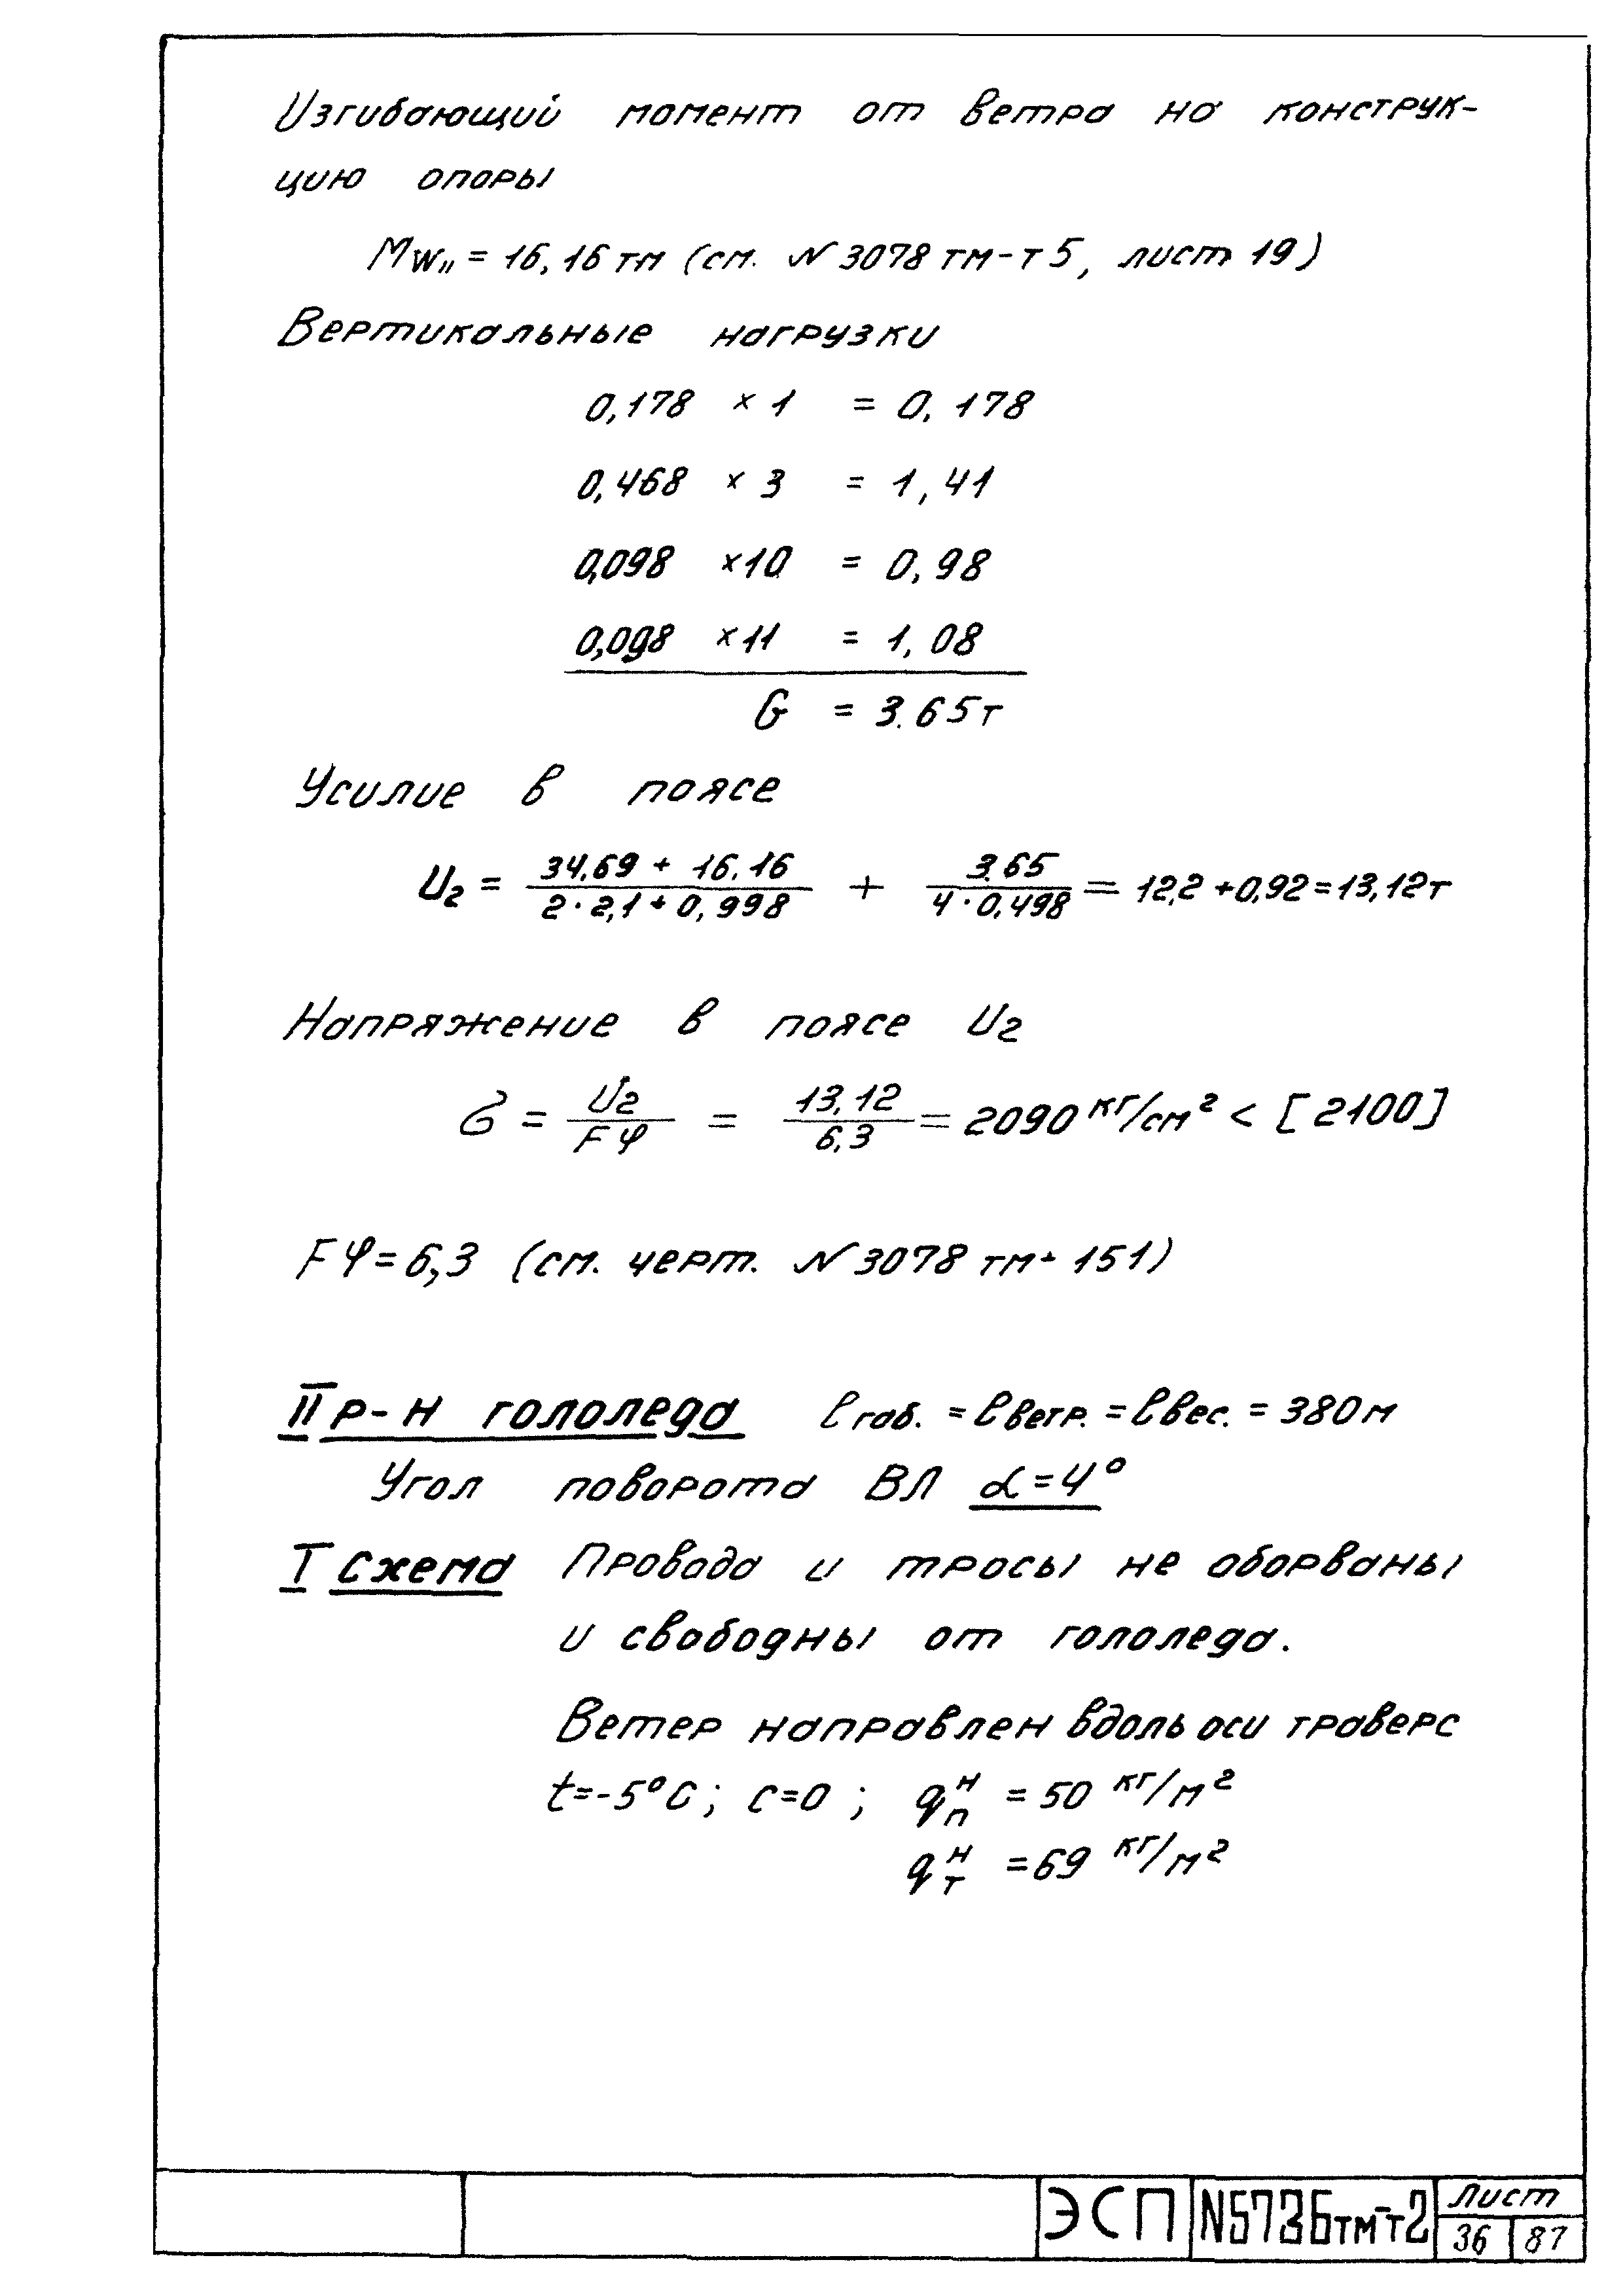 Изгибающий момент от ветра на конструк-
цию опоры
Mw" = 16,16 тм (см. N 3078 тм-т5, лист 19)
Вертикальные нагрузки
0,178 × 1 = 0,178
0,468 × 3 = 1,41
0,098 × 10 = 0,98
0,098 × 11 = 1,08
G = 3.65т
Усилие в поясе
U₂ = (34,69 + 16,16)/(2·2,1 + 0,998) + 3.65/(4·0,498) = 12,2 + 0,92 = 13,12т
Напряжение в поясе U₂
σ = U₂/Fφ = 13,12/6,3 = 2090 кг/см² < [2100]
Fφ = 6,3 (см. черт. N 3078 тм-151)
II р-н гололеда ℓгаб. = ℓветр. = ℓвес. = 380м
Угол поворота ВЛ α = 4°
I схема Провода и тросы не оборваны
и свободны от гололеда.
Ветер направлен вдоль оси траверс
t=-5°C; c=0; qпн = 50 кг/м²
qтн = 69 кг/м²
ЭСП N5736тм-т2 Лист
36 87